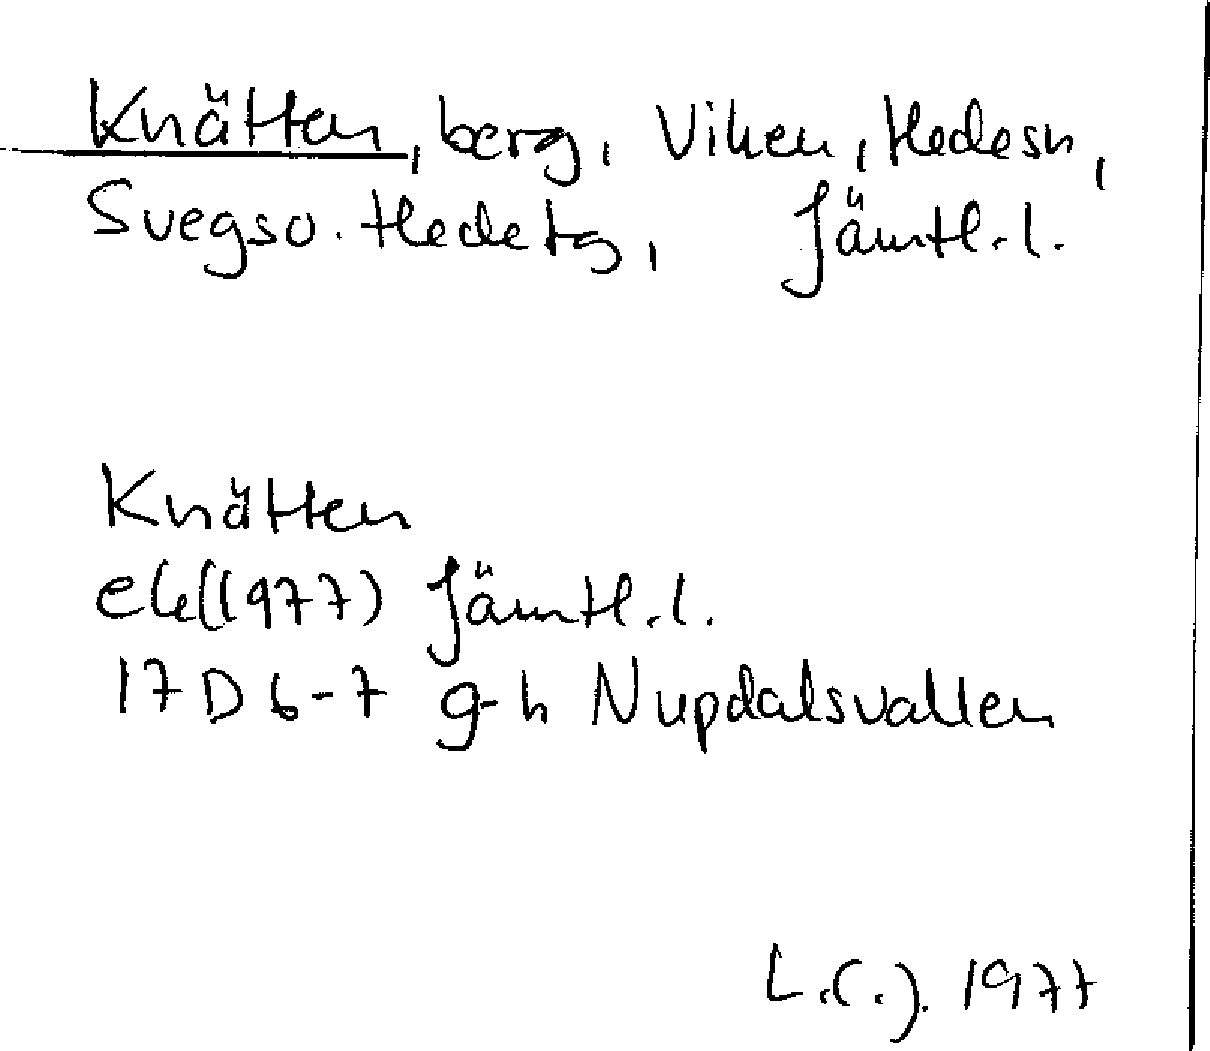 Knätten, berg, Viken, Hedesn,
Svegs o. Hede tg, Jämtl. l.
Knätten
ek (1977) Jämtl. l.
17D 6-7 g-h Nupdalsvallen
L.C.J. 1977